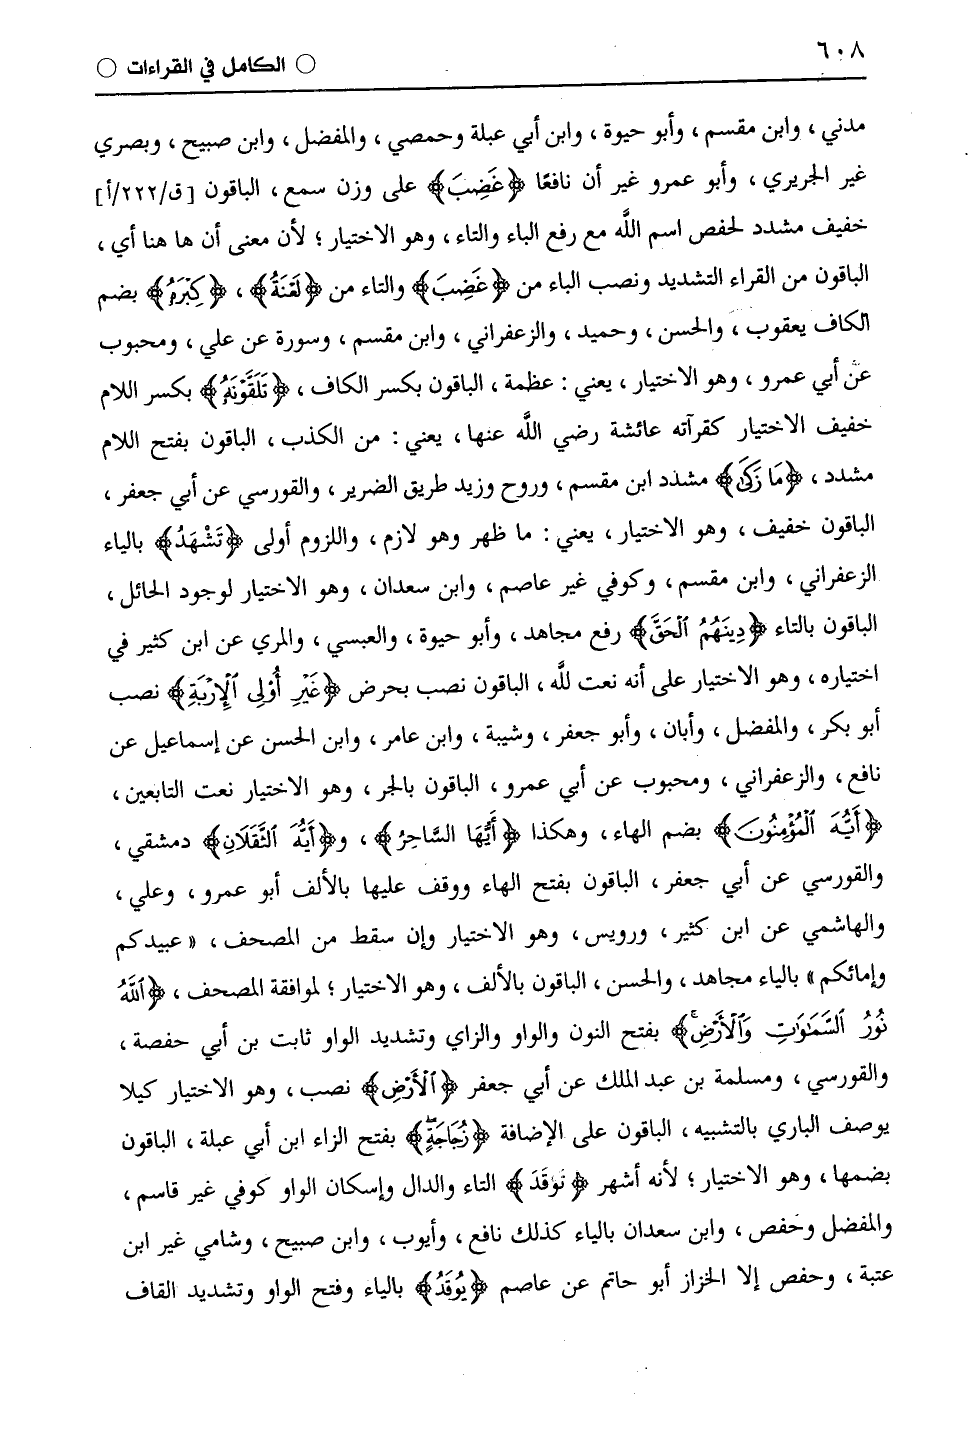 ٦٠٨
○ الكامل في القراءات ○
مدني ، وابن مقسم ، وأبو حيوة ، وابن أبي عبلة وحمصي ، والمفضل ، وابن صبيح ، وبصري
غير الجريري ، وأبو عمرو غير أن نافعًا ﴿غَضِبَ﴾ على وزن سمع ، الباقون [ق/٢٢٢/أ]
خفيف مشدد لحفص اسم اللَّه مع رفع الباء والتاء ، وهو الاختيار ؛ لأن معنى أن ها هنا أي ،
الباقون من القراء التشديد ونصب الباء من ﴿غَضِبَ﴾ والتاء من ﴿لَعْنَةُ﴾ ، ﴿كِبْرَهُ﴾ بضم
الكاف يعقوب ، والحسن ، وحميد ، والزعفراني ، وابن مقسم ، وسورة عن علي ، ومحبوب
عن أبي عمرو ، وهو الاختيار ، يعني : عظمة ، الباقون بكسر الكاف ، ﴿تَلَقَّوْنَهُ﴾ بكسر اللام
خفيف الاختيار كقرآته عائشة رضي اللَّه عنها ، يعني : من الكذب ، الباقون بفتح اللام
مشدد ، ﴿مَا زَكَى﴾ مشدد ابن مقسم ، وروح وزيد طريق الضرير ، والقورسي عن أبي جعفر ،
الباقون خفيف ، وهو الاختيار ، يعني : ما ظهر وهو لازم ، واللزوم أولى ﴿تَشْهَدُ﴾ بالياء
الزعفراني ، وابن مقسم ، وكوفي غير عاصم ، وابن سعدان ، وهو الاختيار لوجود الحائل ،
الباقون بالتاء ﴿دِينَهُمُ ٱلْحَقَّ﴾ رفع مجاهد ، وأبو حيوة ، والعبسي ، والمري عن ابن كثير في
اختياره ، وهو الاختيار على أنه نعت للَّه ، الباقون نصب بحرض ﴿غَيْرِ أُوْلِى ٱلْإِرْبَةِ﴾ نصب
أبو بكر ، والمفضل ، وأبان ، وأبو جعفر ، وشيبة ، وابن عامر ، وابن الحسن عن إسماعيل عن
نافع ، والزعفراني ، ومحبوب عن أبي عمرو ، الباقون بالجر ، وهو الاختيار نعت التابعين ،
﴿أَيُّهَ ٱلْمُؤْمِنُونَ﴾ بضم الهاء ، وهكذا ﴿أَيُّهَا السَّاحِرُ﴾ ، و﴿أَيُّهَ ٱلثَّقَلَانِ﴾ دمشقي ،
والقورسي عن أبي جعفر ، الباقون بفتح الهاء ووقف عليها بالألف أبو عمرو ، وعلي ،
والهاشمي عن ابن كثير ، ورويس ، وهو الاختيار وإن سقط من المصحف ، « عبيدكم
وإمائكم » بالياء مجاهد ، والحسن ، الباقون بالألف ، وهو الاختيار ؛ لموافقة المصحف ، ﴿ٱللَّهُ
نُورُ ٱلسَّمَٰوَٰتِ وَٱلْأَرْضِ﴾ بفتح النون والواو والزاي وتشديد الواو ثابت بن أبي حفصة ،
والقورسي ، ومسلمة بن عبد الملك عن أبي جعفر ﴿ٱلْأَرْضِ﴾ نصب ، وهو الاختيار كيلا
يوصف الباري بالتشبيه ، الباقون على الإضافة ﴿زُجَاجَةٍ﴾ بفتح الزاء ابن أبي عبلة ، الباقون
بضمها ، وهو الاختيار ؛ لأنه أشهر ﴿تَوَقَدَ﴾ التاء والدال وإسكان الواو كوفي غير قاسم ،
والمفضل وحفص ، وابن سعدان بالياء كذلك نافع ، وأيوب ، وابن صبيح ، وشامي غير ابن
عتبة ، وحفص إلا الخزاز أبو حاتم عن عاصم ﴿يُوقَدُ﴾ بالياء وفتح الواو وتشديد القاف